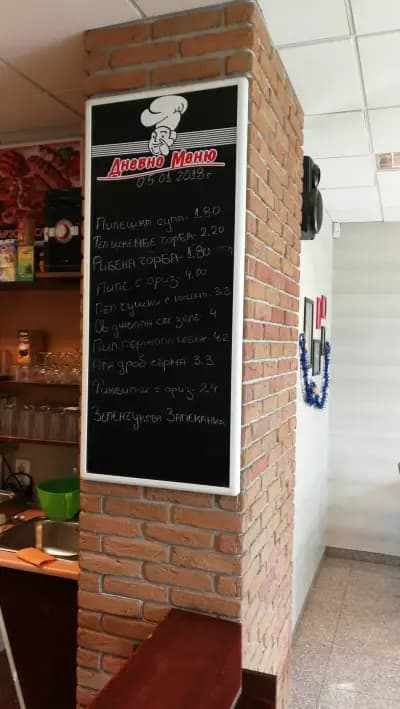 Дневно Меню
05.01.2018г
Пилешка супа - 1.80
Тел шкембе чорба - 2.20
Рибена чорба - 1.80
Пиле с ориз - 4.00
Пъл чушки с кайма 3.3
Св джолан със зеле 4
4.2
Агн дроб сарма 3.3
с ориз - 2.4
Зеленчукова Запеканка